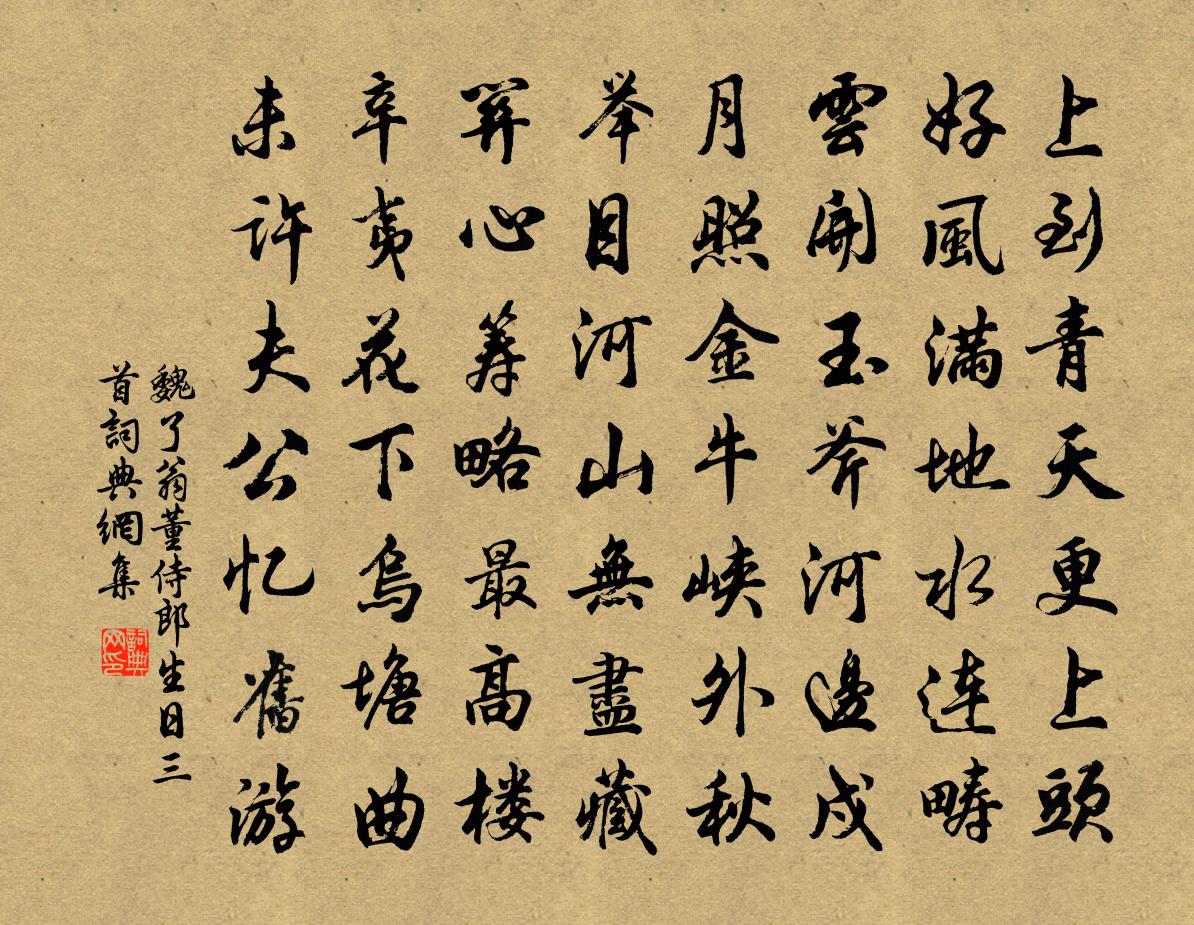 上到青天更上頭
好風滿地水連疇
雲開玉斧河邊戍
月照金牛峽外秋
举目河山無盡藏
關心筹略最高楼
辛夷花下烏塘曲
未許夫公忆舊游
魏了翁董侍郎生日三
首詞典網集
詞典网印